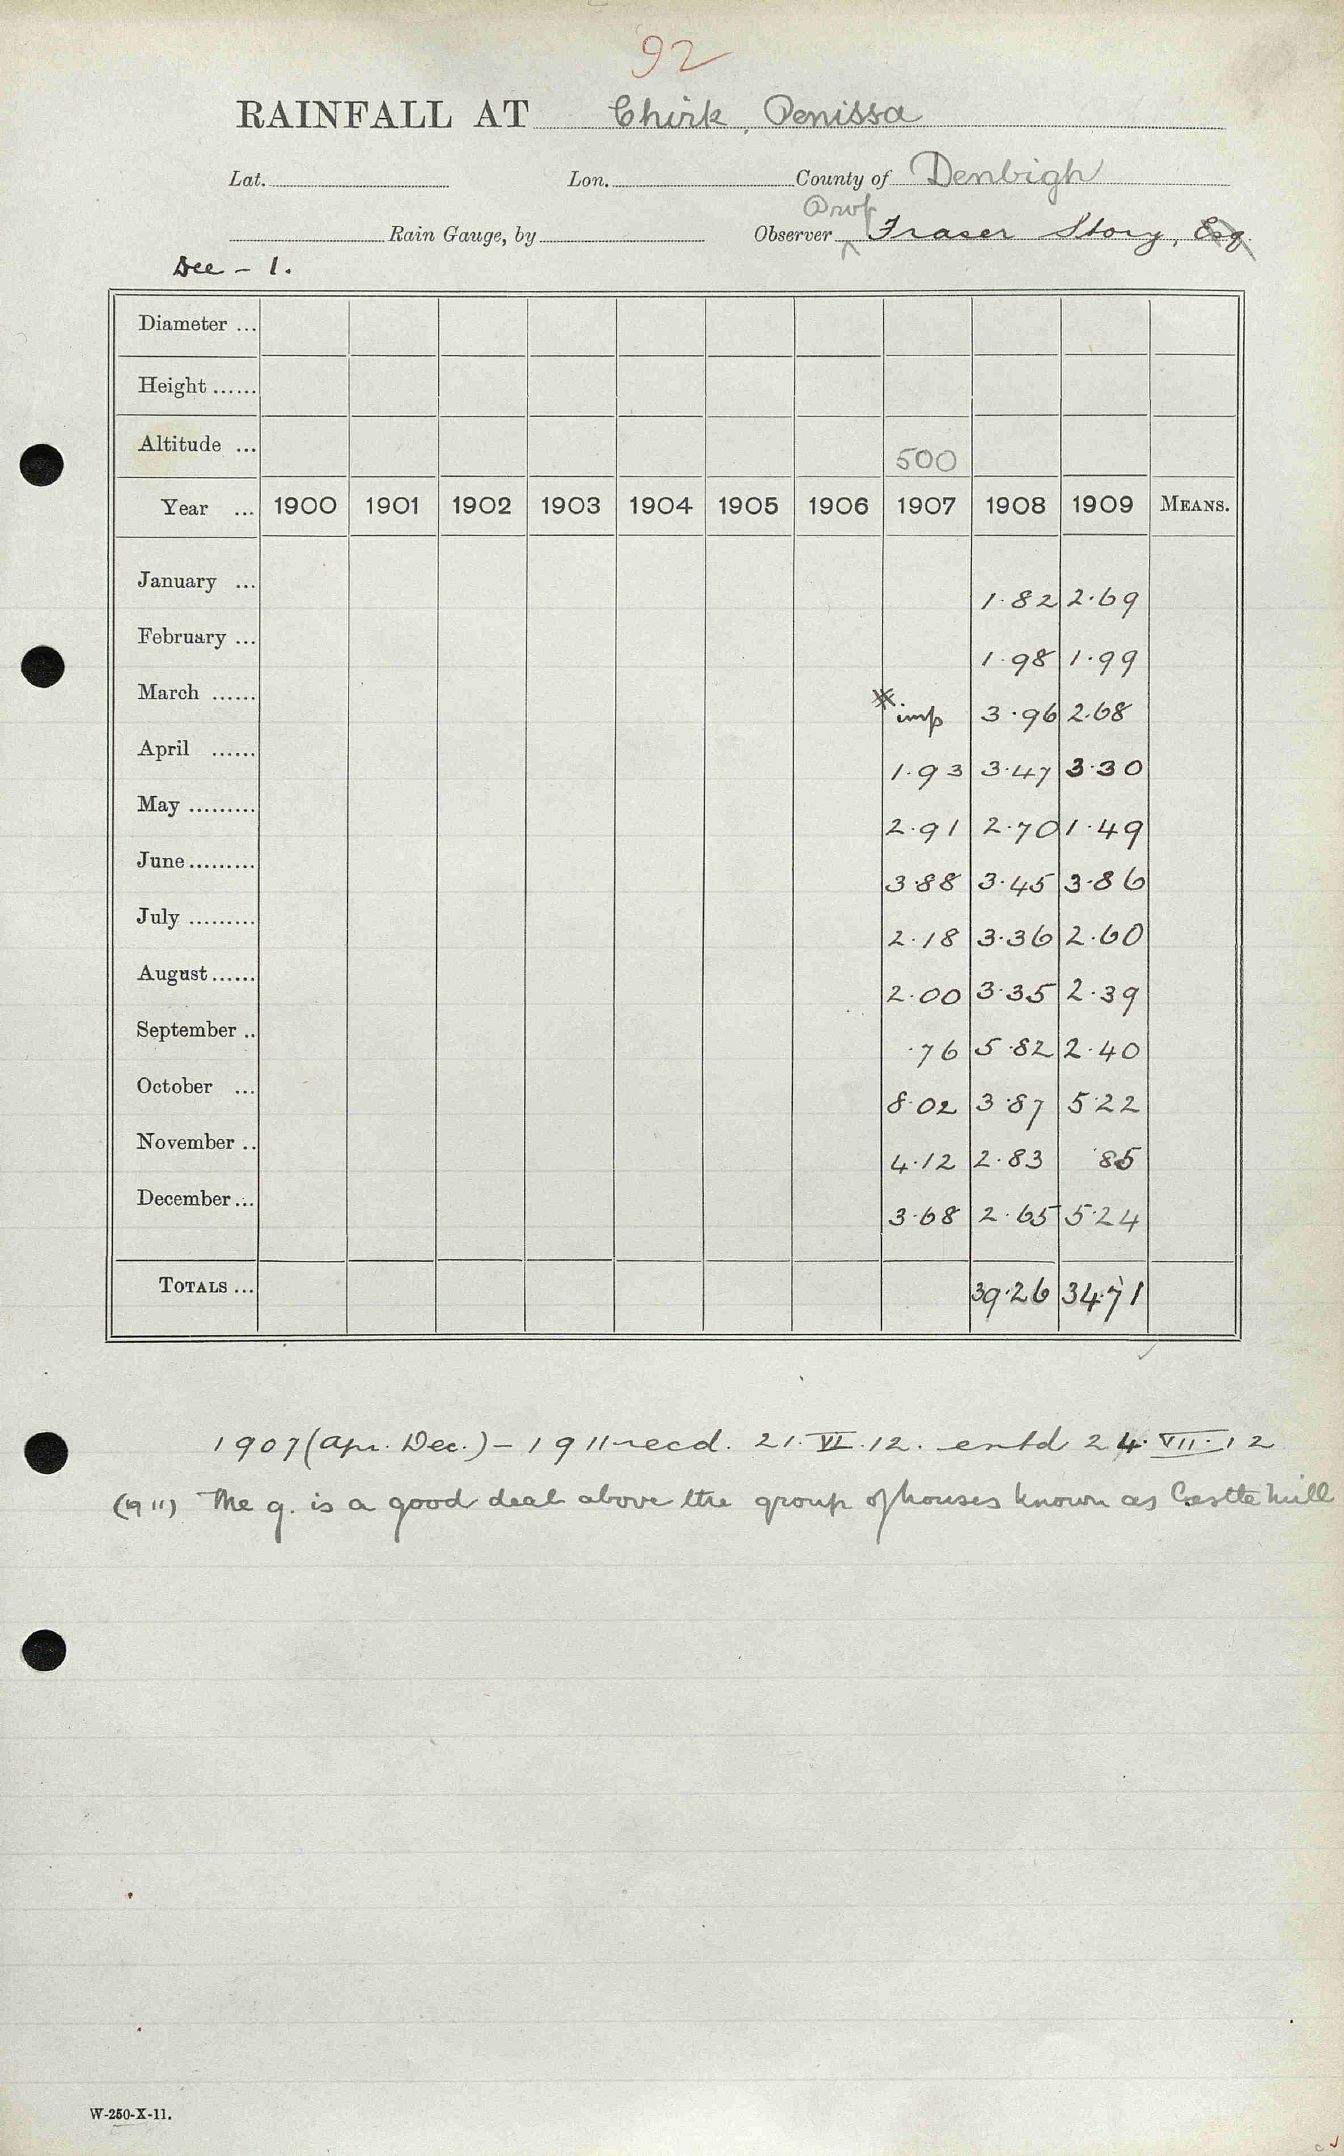 92
RAINFALL AT Chirk, Penissa
Lat. Lon. County of Denbigh
Rain Gauge, by Observer Prof Fraser Story, Esq
Dec - 1.
Diameter ...
Height ......
Altitude ... 500
Year ... 1900 1901 1902 1903 1904 1905 1906 1907 1908 1909 MEANS.
January ... 1.82 2.69
February ... 1.98 1.99
March ...... * imp 3.96 2.68
April ...... 1.93 3.47 3.30
May ......... 2.91 2.70 1.49
June ......... 3.88 3.45 3.86
July ......... 2.18 3.36 2.60
August ...... 2.00 3.35 2.39
September .. .76 5.82 2.40
October ... 8.02 3.87 5.22
November .. 4.12 2.83 .85
December ... 3.68 2.65 5.24
TOTALS ... 39.26 34.71
1907 (Apr. Dec.) - 1911 recd. 21.VI.12. entd 24.VII.12
(1911) The g. is a good deal above the group of houses known as Castle mill
W-250-X-11.